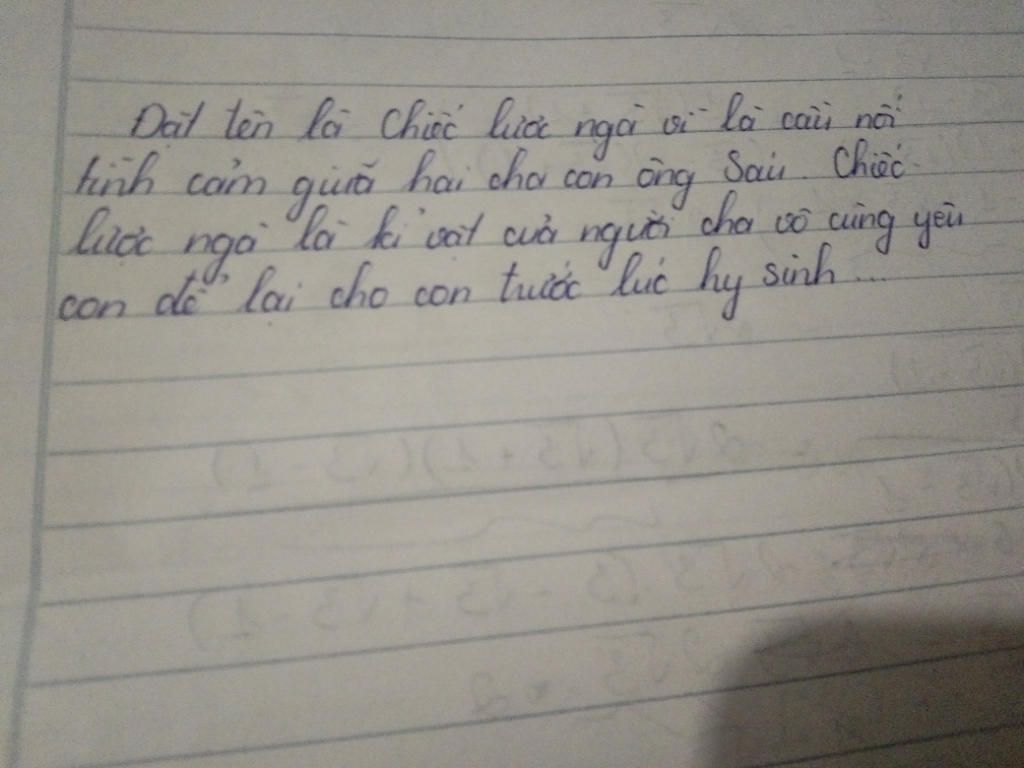 Đặt tên là Chiếc lược ngà vì là cầu nối
tình cảm giữa hai cha con ông Sáu. Chiếc
lược ngà là kỉ vật của người cha vô cùng yêu
con để lại cho con trước lúc hy sinh...